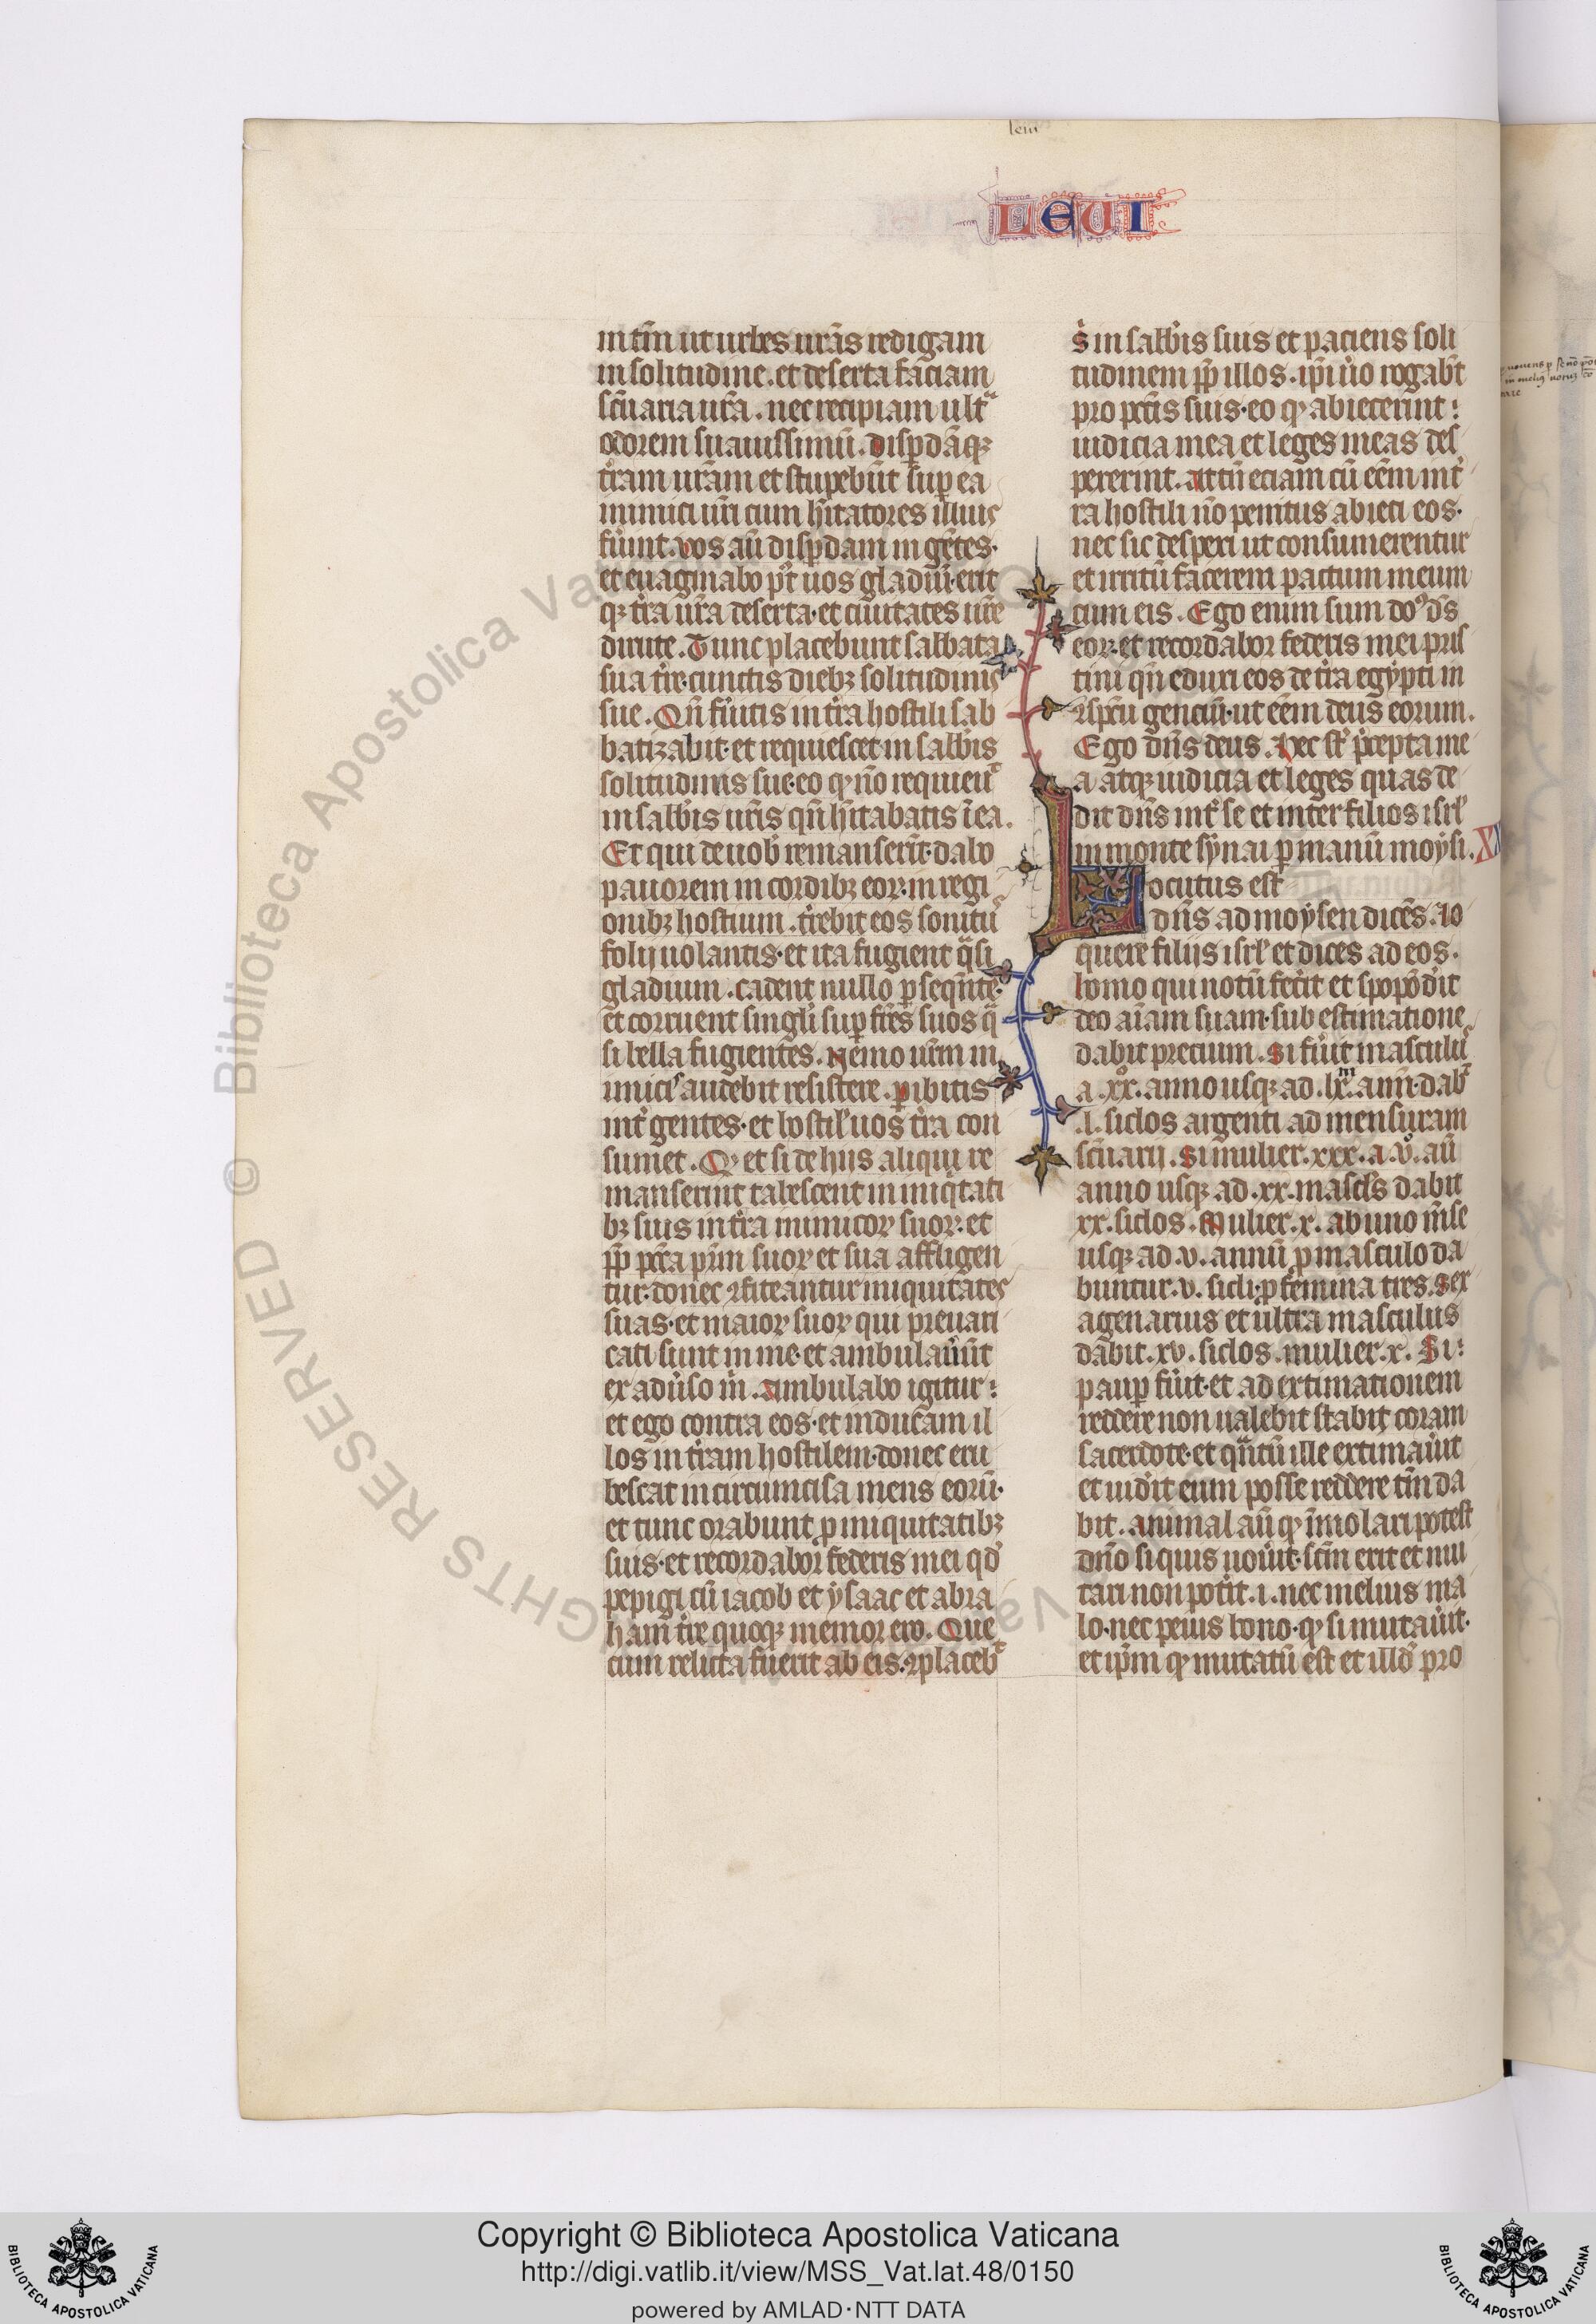 leui
LEUI
in tm̄ ut urbes ur̄as redigam
in solitudine. et deserta faciam
sc̄uaria ur̄a. nec recipiam ultͣ
odorem suauissimū. Disꝑdāqꝫ
tr̄am ur̄am et stupebūt suꝑ ea
inimici ur̄i cum hītatores illius
fuīnt. vos aū disꝑdam in gētes.
et euaginabo pꝰt uos gladiū. erit
qꝫ tr̄a ur̄a deserta. et ciuitates ur̄e
dirute. Tunc placebunt sabbata
sua tr̄e. cunctis diebꝫ solitudinis
sue. Qn̄ fūitis in tr̄a hostili sab
batizabit. et requiescet in sabb̄is
solitudinis sue. eo ꝙ nō requieuͭ
in sabb̄is ur̄is qn̄ hītabatis ī ea.
Et qui de uob̄ remanserīt. dabo
pauorem in cordibꝫ eoꝝ. in regi
onibꝫ hostium. tr̄ebit eos sonitus
folij uolantis. et ita fugient qͣsi
gladium. cadent nullo ꝑseqn̄te.
et corruent singli̾ suꝑ fr̄es suos qͣ
si bella fugientes. Nemo ur̄m in
imicis audebit resistere. ꝑibitis
int̾ gentes. et hostil̾ uos tr̄a con
sumet. Qꝙ et si de hijs aliqui re
manserint tabescent in iniqͥtati
bꝫ suis in tr̄a inimicoꝝ suoꝝ. et
ꝓp̄ pc̄ca pr̄m suoꝝ et sua affligen
tur. donec ꝯfiteantur iniquitates
suas. et maioꝝ suoꝝ qui preuari
cati sunt in me. et ambulau̾ūt
ex adu̾so m̄. Ambulabo igitur:
et ego contra eos. et inducam il
los in tr̄am hostilem. donec eru
bescat incircumcisa mens eorū.
et tunc orabunt ꝓ iniquitatibꝫ
suis. et recordabor federis mei qd̾
pepigi cū iacob et ysaac et abra
ham tr̄e quoqꝫ memor ero. Que
cum relicta fuerit ab eis. ꝯplacebͭ
s̾ in sabb̄is suis et paciens soli
tudinem ꝓp̄ illos. ip̄i u̾o rogab̄t
pro pctīs suis. eo ꝙ abiecerint:
iudicia mea et leges meas des
pexerint. Attn̄ eciam cū eēm int̾
ra hostili nō penitus abieci eos.
nec sic despexi ut consumerentur
et irritū facerem pactum meum
cum eis. Ego enim sum doꝰ dꝰs
eoꝝ. et recordabor federis mei pris
tini qn̄ eduxi eos de tr̄a egypti in
ꝯspc̄u genciū. ut eēm deus eorum.
Ego dn̄s deus. Hec sͭ p̄cepta me
a atqꝫ iudicia et leges quas de
dit dn̄s int̾ se et inter filios isrl̾
in monte synai ꝑ manū moysi.
Locutus est
dn̄s ad moysen dicēs. lo
quere filijs isrl̾ et dices ad eos.
homo qui uotū fec̾it et spopōdit
deo aīam suam. sub estimatione
dabit precium. Si fu̾it masculus
a .xxͦ. anno usqꝫ ad .lxͫ. ann̄. dabͭ
.l. siclos argenti ad mensuram
sc̄uarij. Si mulier .xxx. a .vͦ. aū
anno usqꝫ ad .xx. mascl̾s dabit
xx. siclos. Mulier .x. ab uno mēse
usqꝫ ad .v. annū ꝓ masculo da
buntur .v. sicli. ꝓ femina tres. Sex
agenarius et ultra masculus
dabit .xv. siclos. mulier .x. Si:
pauꝑ fu̾it. et ad extimationem
reddere non ualebit stabit coram
sacerdote. et qn̄tū ille extimau̾it
et uid̾it eum posse reddere tm̄ da
bit. animal aū ꝙ īmolari potest
dn̄o si quis uou̾it. sc̄m erit et mu
tari non pot̾it. i. nec melius ma
lo. nec peius bono. ꝙ si mutau̾it.
et ip̄m ꝙ mutatū est et illd̾ pro
Copyright © Biblioteca Apostolica Vaticana
http://digi.vatlib.it/view/MSS_Vat.lat.48/0150
powered by AMLAD·NTT DATA
BIBLIOTECA APOSTOLICA VATICANA
BIBLIOTECA APOSTOLICA VATICANA